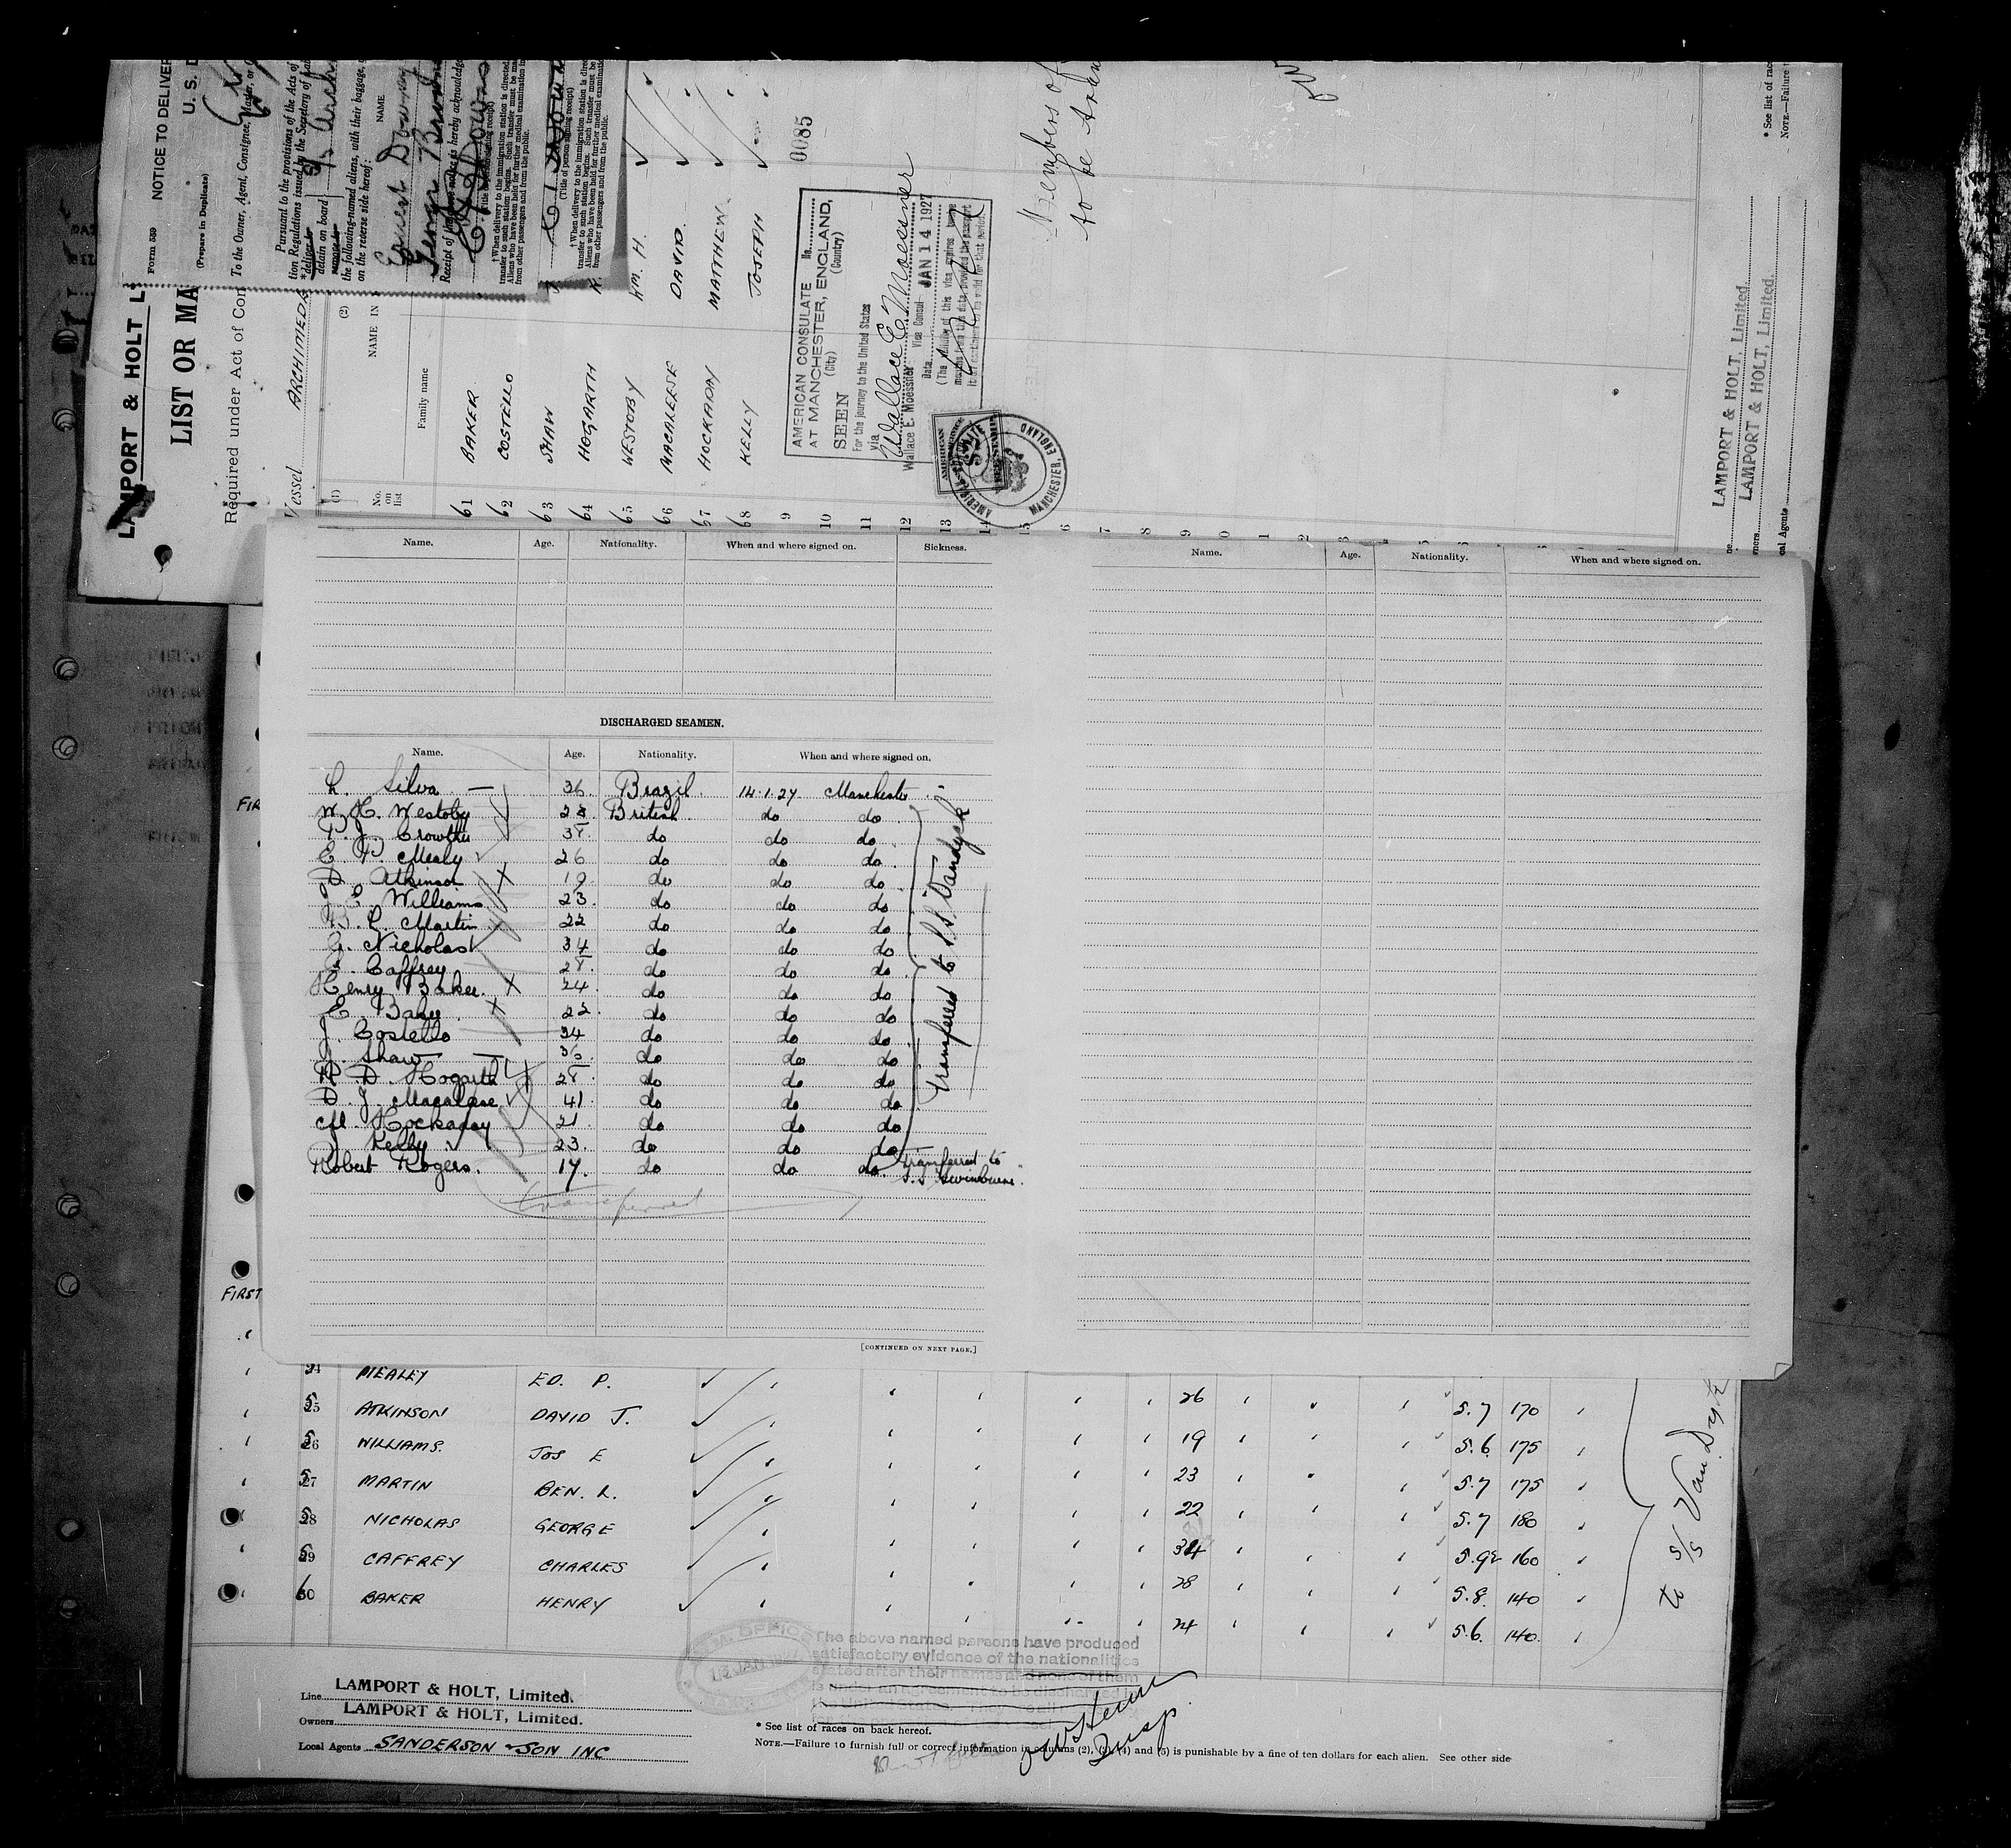 Form 539 NOTICE TO DELIVER
U. S. D
(Prepare in Duplicate)
To the Owner, Agent, Consignee, Master, or
Pursuant to the provisions of the Acts of
tion Regulations issued by the Secretary of
detain on board
the following-named aliens, with their baggage,
on the reverse side hereof:
NAME
Ernest Downs
George Brown
Receipt of is hereby acknowledged
† When delivery to the immigration station is directed
transfer to such station begins. Such transfer must be
Aliens who have been held for further medical examination
from other passengers and from the public.
(Title of person signing receipt)
† When delivery to the immigration station is direc
transfer to such station begins. Such transfer must be
Aliens who have been held for further medical examinatio
from other passengers and from the public.
LAMPORT & HOLT L
LIST OR MA
Required under Act of Con
Vessel ARCHIMEDE
(1) (2)
No. on list
NAME IN
Family name
61 BAKER
62 COSTELLO
63 SHAW
64 HOGARTH
65 WESTOBY WM. H.
66 MACALEESE DAVID.
67 HOCKADAY MATTHEW.
68 KELLY JOSEPH
9
10
11
12
13
14
15
6
7
8
9
0
1
2
3
0085
AMERICAN CONSULATE No.
AT MANCHESTER, ENGLAND,
(City) (Country)
SEEN
For the journey to the United States
via
Wallace E. Moessner
Wallace E. Moessner Vice Consul
Date JAN 14 1927
MANCHESTER, ENGLAND
Members of
to be
LAMPORT & HOLT, Limited.
LAMPORT & HOLT, Limited.
cal Agents
* See list of race
NOTE.—Failure t
Name. Age. Nationality. When and where signed on. Sickness.
Name. Age. Nationality. When and where signed on.
DISCHARGED SEAMEN.
Name. Age. Nationality. When and where signed on.
L. Silva 36 Brazil 14.1.27 Manchester
W. H. Westoby 28 British do do
P. J. Crowther 38 do do do
E. P. Mealy 26 do do do
D. Atkinson 19 do do do
J. E. Williams 23 do do do
B. L. Martin 22 do do do
G. Nicholas 34 do do do
C. Caffrey 28 do do do
Henry Baker 24 do do do
E. Baker 22 do do do
J. Costello 34 do do do
J. Shaw 36 do do do
R. D. Hogarth 28 do do do
D. J. Macalese 41 do do do
M. Hockaday 21 do do do
J. Kelly 23 do do do
Transferred to S.S. "Vandyck"
Robert Rogers. 17 do do do Transferred to
S.S Swinburne
transferred
[CONTINUED ON NEXT PAGE.]
FIRST
24 MEALEY ED. P. 26 5.7 170
25 ATKINSON DAVID J. 19 5.6 175
26 WILLIAMS. JOS E 23 5.7 175
27 MARTIN BEN. L. 22 5.7 180
28 NICHOLAS GEORGE 34 5.9½ 160
29 CAFFREY CHARLES 28 5.8. 140
60 BAKER HENRY 24 5.6. 140.
to S/S Van Dyke
The above named persons have produced
satisfactory evidence of the nationalities
stated after their names and none of them
is under an agreement to be discharged in
Line LAMPORT & HOLT, Limited.
Owners LAMPORT & HOLT, Limited.
Local Agents SANDERSON & SON INC
Insp
* See list of races on back hereof.
NOTE.—Failure to furnish full or correct information in columns (2), (3), (4) and (5) is punishable by a fine of ten dollars for each alien. See other side